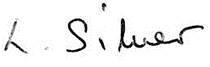 L. Silver